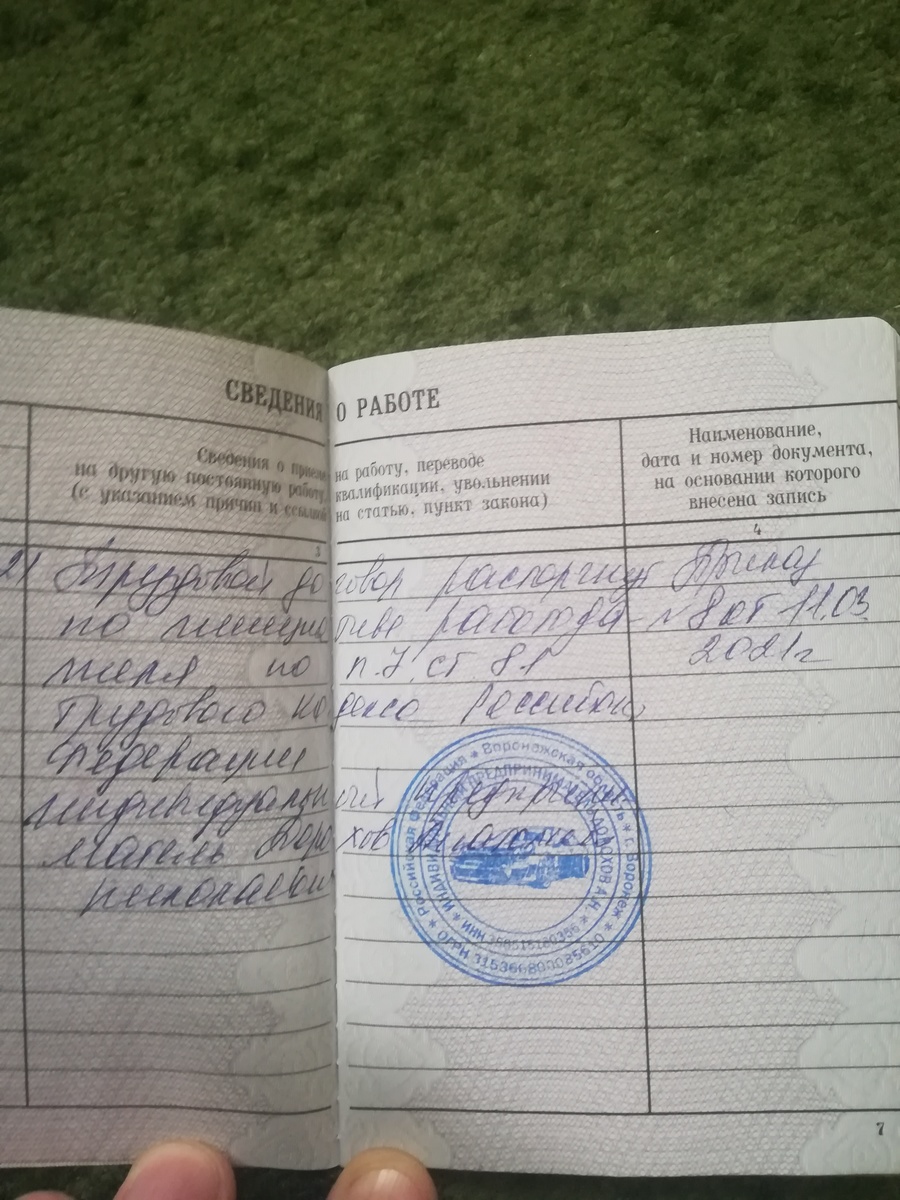 СВЕДЕНИЯ О РАБОТЕ
Сведения о приеме на работу, переводе
на другую постоянную работу, квалификации, увольнении
(с указанием причин и ссылкой на статью, пункт закона)
Наименование,
дата и номер документа,
на основании которого
внесена запись
3 4
21 Трудовой договор расторгнут Приказ
по инициативе работода- №8 от 11.03.
теля по п.7 ст. 81 2021г
Трудового кодекса Российской
Федерации
Индивидуальный предприни-
матель Дорохов
Николаевич
Российская Федерация * Воронежская область * г. Воронеж *
ИНДИВИДУАЛЬНЫЙ ПРЕДПРИНИМАТЕЛЬ ДОРОХОВ А.Н.
* ИНН
ОГРН
7